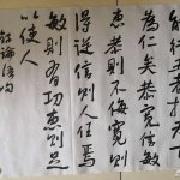 能行五者於天下
為仁矣恭寬信敏
惠恭則不侮寬則
得眾信則人任焉
敏則有功惠則足
以使人
錄論語句